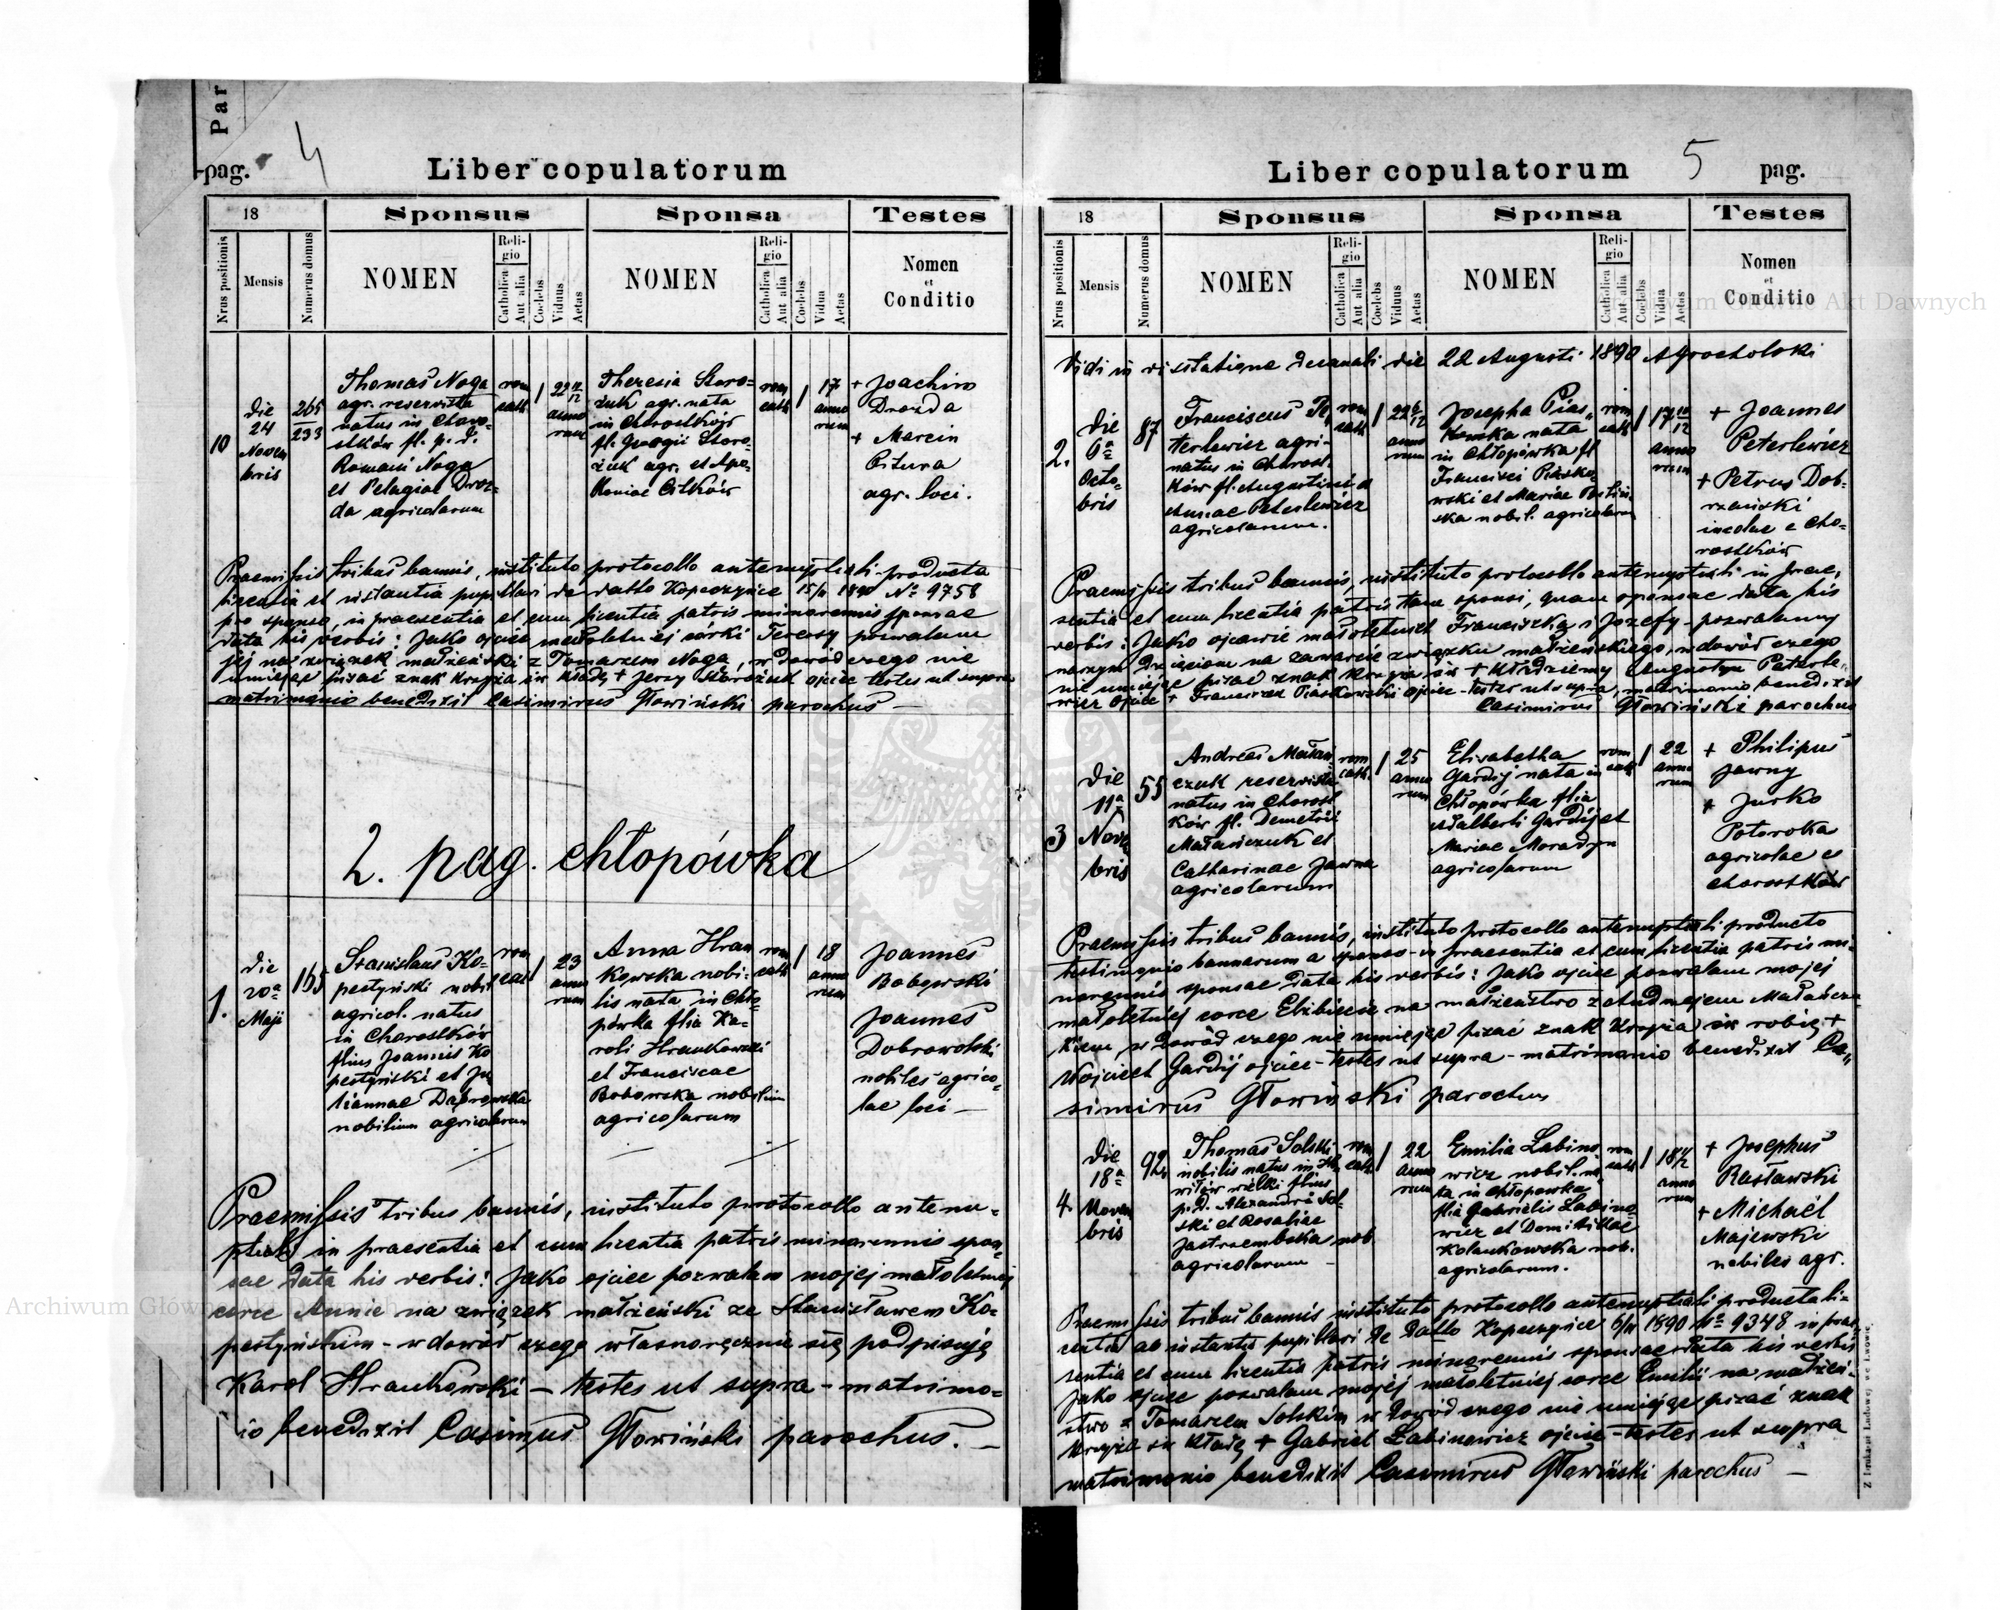 Par
pag. 4
Liber copulatorum
18
Sponsus
Sponsa
Testes
Nrus positionis
Mensis
Numerus domus
NOMEN
Religio
Catholica
Aut alia
Coelebs
Viduus
Aetas
NOMEN
Religio
Catholica
Aut alia
Coelebs
Vidua
Aetas
Nomen
et
Conditio
10
die
24
Novem
bris
265
233
Thomas Noga
agr. reservista
natus in Choro-
stków fl. p. d.
Romani Noga
et Pelagiae Droz-
da agricolarum
rom
cath
1
22
anno
rum
Theresia Storo-
żuk agr. nata
in Chorostków
fl. Georgii Storo-
żuk agr. et Apo-
loniae Citków
rom
cath
1
17
anno
rum
+ Joachim
Drozda
+ Marcin
Pitura
agr. loci.
Praemissis tribus bannis, instituto protocollo antenuptiali producta
licentia et instantia pupillari de datto Kopeczyńce 15/11 1890 No 9758
pro sponso, in praesentia et cum licentia patris minorennis sponsae
data his verbis: Jako ojciec małoletniej córki Teresy pozwalam
jej na związek małżeński z Tomaszem Nogą, w dowód czego nie
umiejąc pisać znak krzyża św kładę + Jerzy Storożuk ojciec testes ut supra
matrimonio benedixit Casimirus Głowiński parochus —
2. pag. Chłopówka
1.
die
20a
Maji
165
Stanislaus Ko-
pestyński nobil
agricol. natus
in Chorostków
filius Joannis Ko
pestyński et Ju
liannae Dąbrowska
nobilium agricolarum
rom
cat
1
23
anno
rum
Anna Hran
kowska nobi-
lis nata in Chło-
pówka filia Ka-
roli Hrankowski
et Franciscae
Bobowska nobilium
agricolarum
rom
cath
1
18
anno
rum
Joannes
Bobowski
Joannes
Dobrowolski
nobiles agrico-
lae loci —
Praemissis tribus bannis, instituto protocollo antenu-
ptiali in praesentia et cum licentia patris minorennis spon-
sae data his verbis: Jako ojciec pozwalam mojej małoletniej
corce Annie na związek małżeński ze Stanisławem Ko-
pestyńskim - w dowód czego własnoręcznie się podpisuję
Karol Hrankowski — testes ut supra - matrimo-
nio benedixit Casimirus Głowiński parochus. —
Liber copulatorum
5 pag.
18
Sponsus
Sponsa
Testes
Nrus positionis
Mensis
Numerus domus
NOMEN
Religio
Catholica
Aut alia
Coelebs
Viduus
Aetas
NOMEN
Religio
Catholica
Aut alia
Coelebs
Vidua
Aetas
Nomen
et
Conditio
Vidi in visitatione decanali die 22 Augusti 1890
2.
die
6a
Octo-
bris
87
Franciscus Pe
terlewicz agri-
natus in Chorost
ków fl. Augustini et
Annae Peterlewicz
agricolarum.
rom
cath
1
22 6/12
anno
rum
Josepha Pias-
kowska nata
in Chłopówka fl
Francisci Piasko-
wski et Mariae
nobil. agricolarum
rom
cath
1
17 10/12
anno
rum
+ Joannes
Peterlewicz
+ Petrus Dob-
rzański
incolae e Cho-
rostków
Praemissis tribus bannis, instituto protocollo antenuptiali in prae-
sentia et cum licentia patris tam sponsi, quam sponsae data his
verbis: Jako ojcowie małoletnich Franciszka i Józefy - pozwalamy
naszym dzieciom na zawarcie związku małżeńskiego, w dowód czego
nie umiejąc pisać znak krzyża św + kładziemy Augustyn Peterle-
wicz ojciec + Franciszek Piaskowski ojciec - testes ut supra, matrimonio benedixit
Casimirus Głowiński parochus
3
die
11a
Novem
bris
55
Andreas Małań
czuk reservista
natus in Chorost
ków fl. Demetrii
Małańczuk et
Catharinae Jawna
agricolarum
rom
cath
1
25
anno
rum
Elisabetha
Gardij nata in
Chłopówka filia
Adalberti Gardij et
Mariae
agricolarum
rom
cath
1
22
anno
rum
+ Philipus
Jawny
+ Jurko
Potoroka
agricolae e
Chorostków
Praemissis tribus bannis, instituto protocollo antenuptiali producto
testimonio bannorum a sponso - in praesentia et cum licentia patris mi-
norennis sponsae data his verbis: Jako ojciec pozwalam mojej
małoletniej corce Elżbiecie na małżeństwo z Andrzejem Małańczu-
kiem, w dowód czego nie umiejąc pisać znak krzyża św robię +
Wojciech Gardij ojciec - testes ut supra - matrimonio benedixit Ca-
simirus Głowiński parochus
4.
die
18a
Novem
bris
92
Thomas Solski
nobilis natus in
wielki filius
p. d. Alexandri Sol
ski et Rosaliae
Jastrzembska nob
agricolarum —
rom
cath
1
22
anno
rum
Emilia Łabino
wicz nobil. na
ta in Chłopówka
filia Gabrielis Łabino
wicz et Domitillae
Kolankowska nob.
agricolarum.
rom
cath
1
18
anno
rum
+ Josephus
Rasławski
+ Michaël
Majewski
nobiles agr.
Praemissis tribus bannis, instituto protocollo antenuptiali producta li-
centia ab instantia pupillari de datto Kopeczyńce 6/11 1890 No 9348 in prae
sentia et cum licentia patris minorennis sponsae data his verbis
Jako ojciec pozwalam mojej małoletniej corce Emilii na małżeń-
stwo z Tomaszem Solskim w dowód czego nie umiejąc pisać znak
krzyża św kładę + Gabriel Łabinowicz ojciec - testes ut supra
matrimonio benedixit Casimirus Głowiński parochus —
Z drukarni Ludowej we Lwowie.
Archiwum Główne Akt Dawnych
Archiwum Główne Akt Dawnych